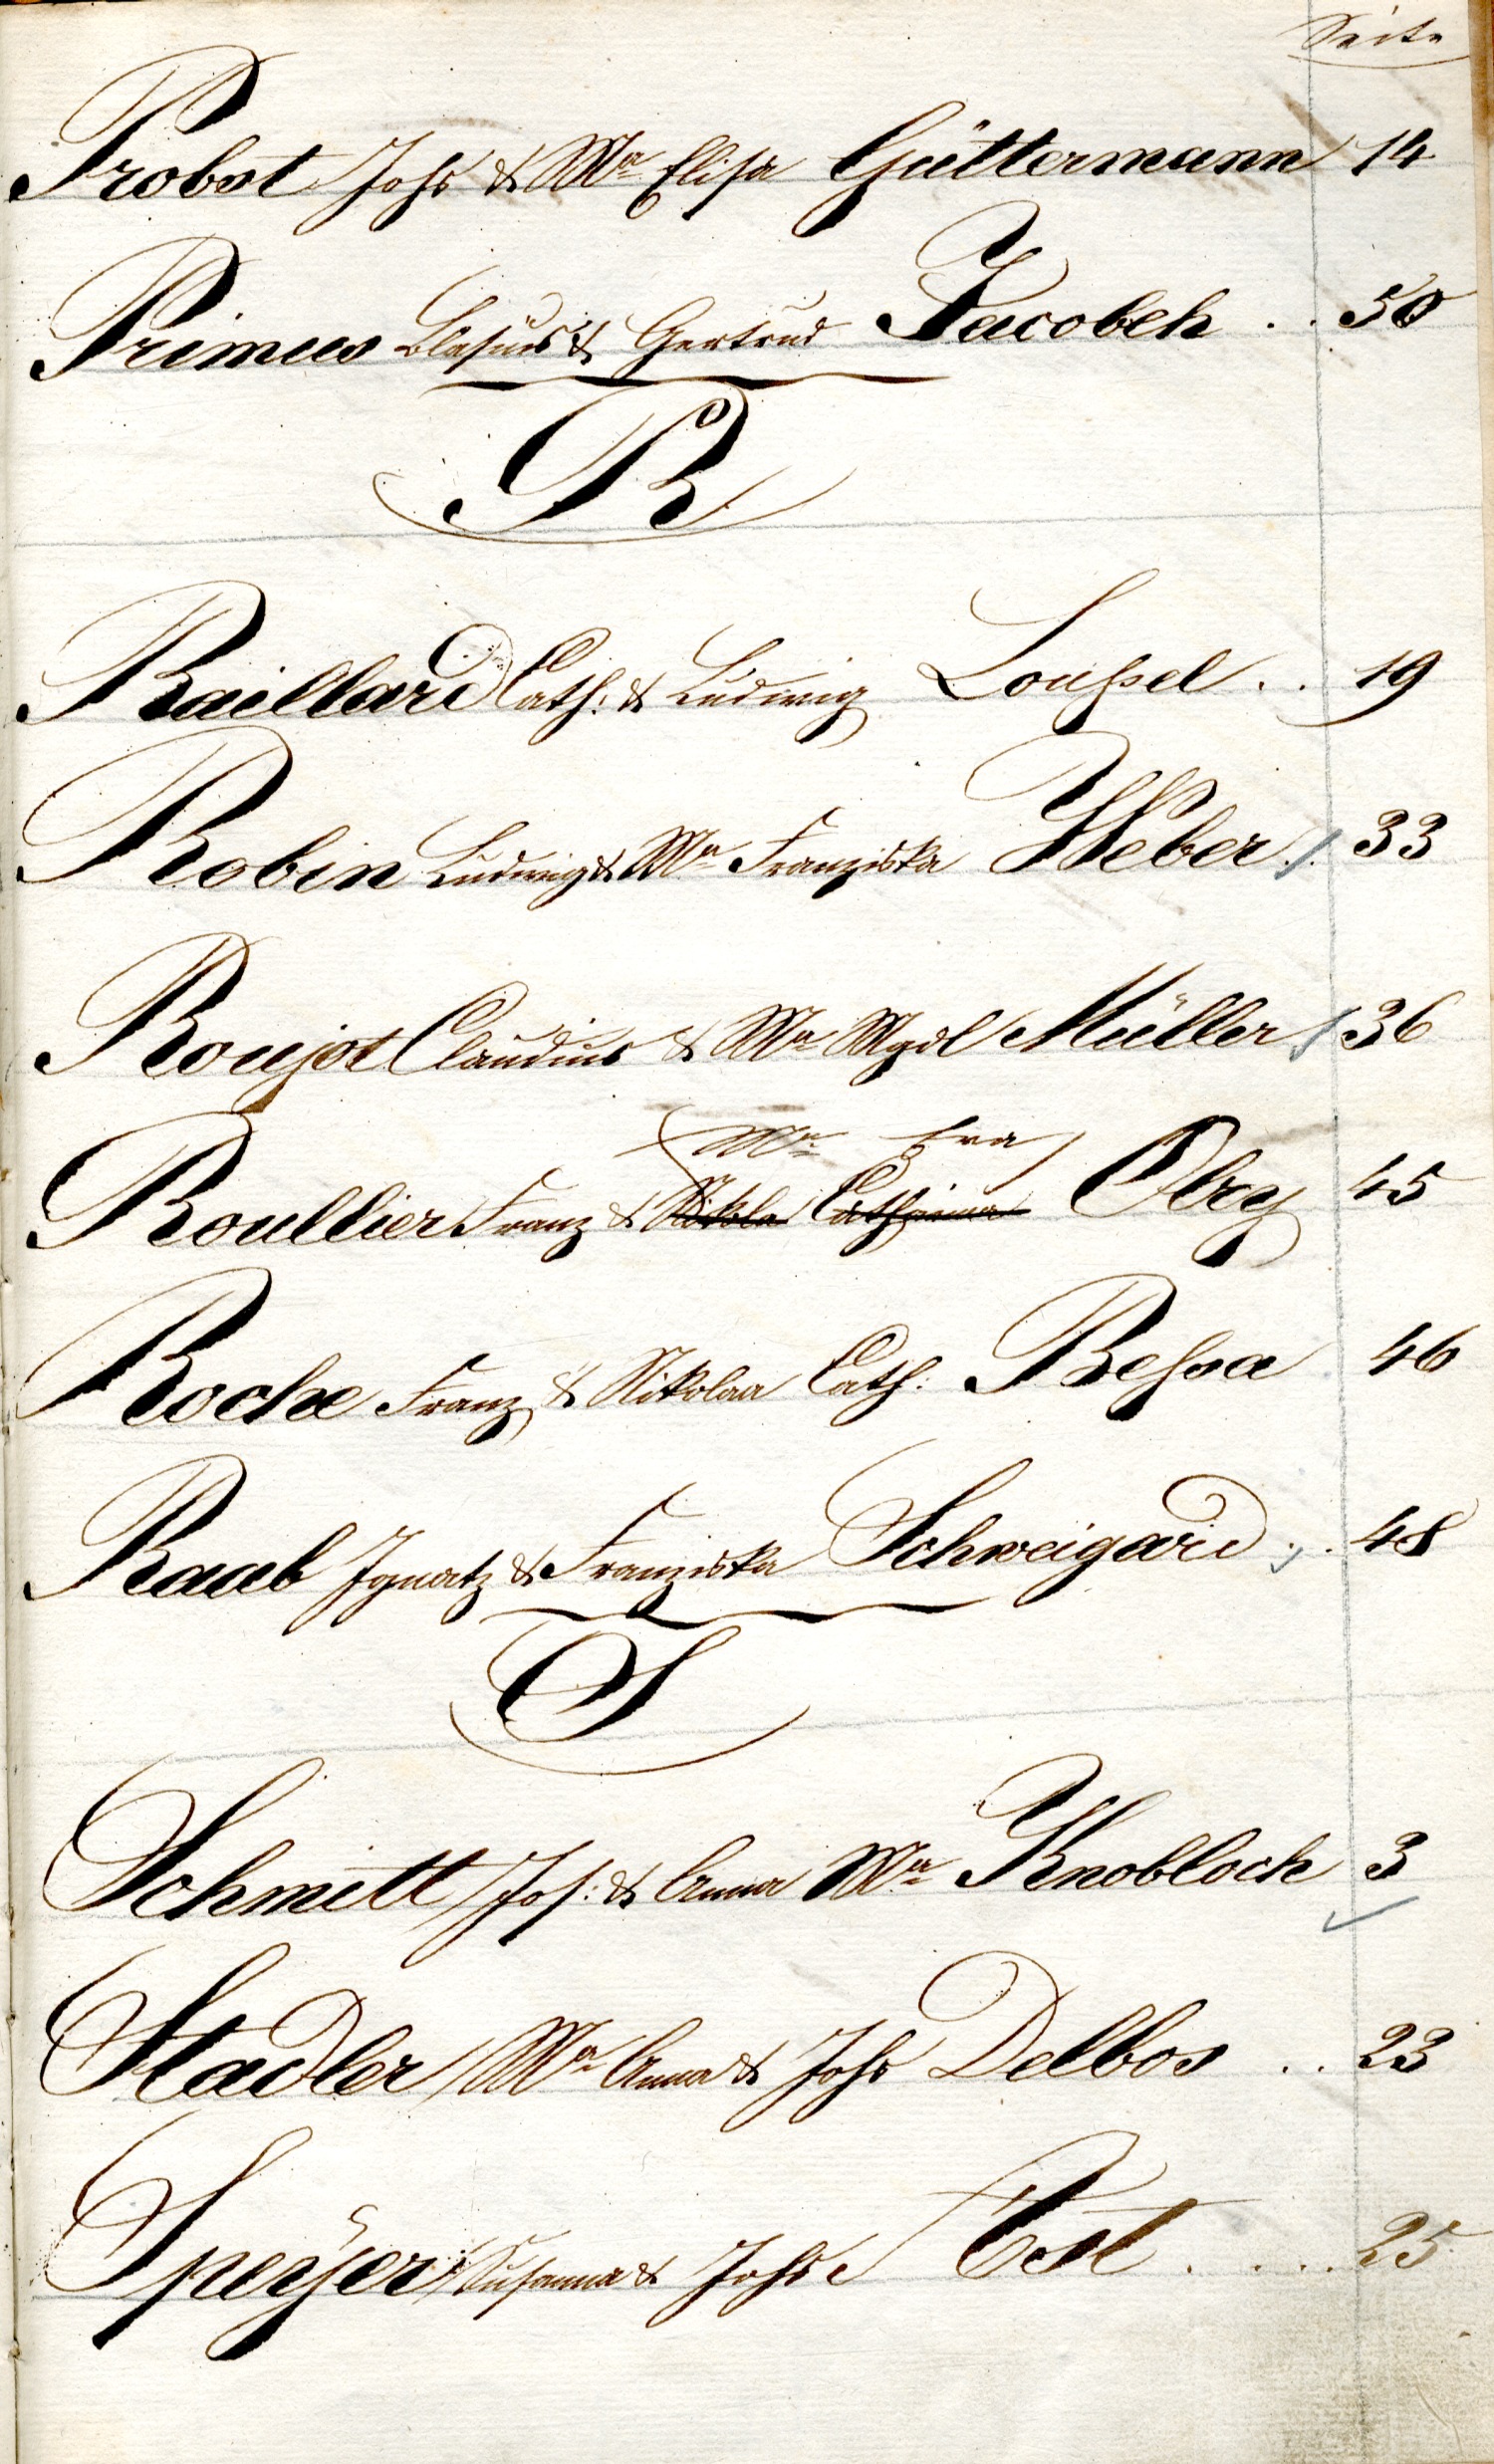 Seite
Probst Johs & Ma Elisa Güttermann 14
Primus Blasius & Gertrud Jacobeh . . 50
R
Raillard Cath: & Ludwig Loußel . . 19
Robin Ludwig & Ma Franziska Weber . 33
Roujot Claudius & Ma Mgdl Müller 36
Ma Eva
Roullier Franz & Nikola Catharina Obry 45
Roche Franz & Nikolaa Cath: Bessa 46
Raab Ignatz & Franziska Schweigard . . 48
S
Schmitt Jos: & Anna Ma Knobloch 3
Stadler Ma Anna & Johs Delbos . . 23
Speyer Susanna & Johs Est . . . . 25